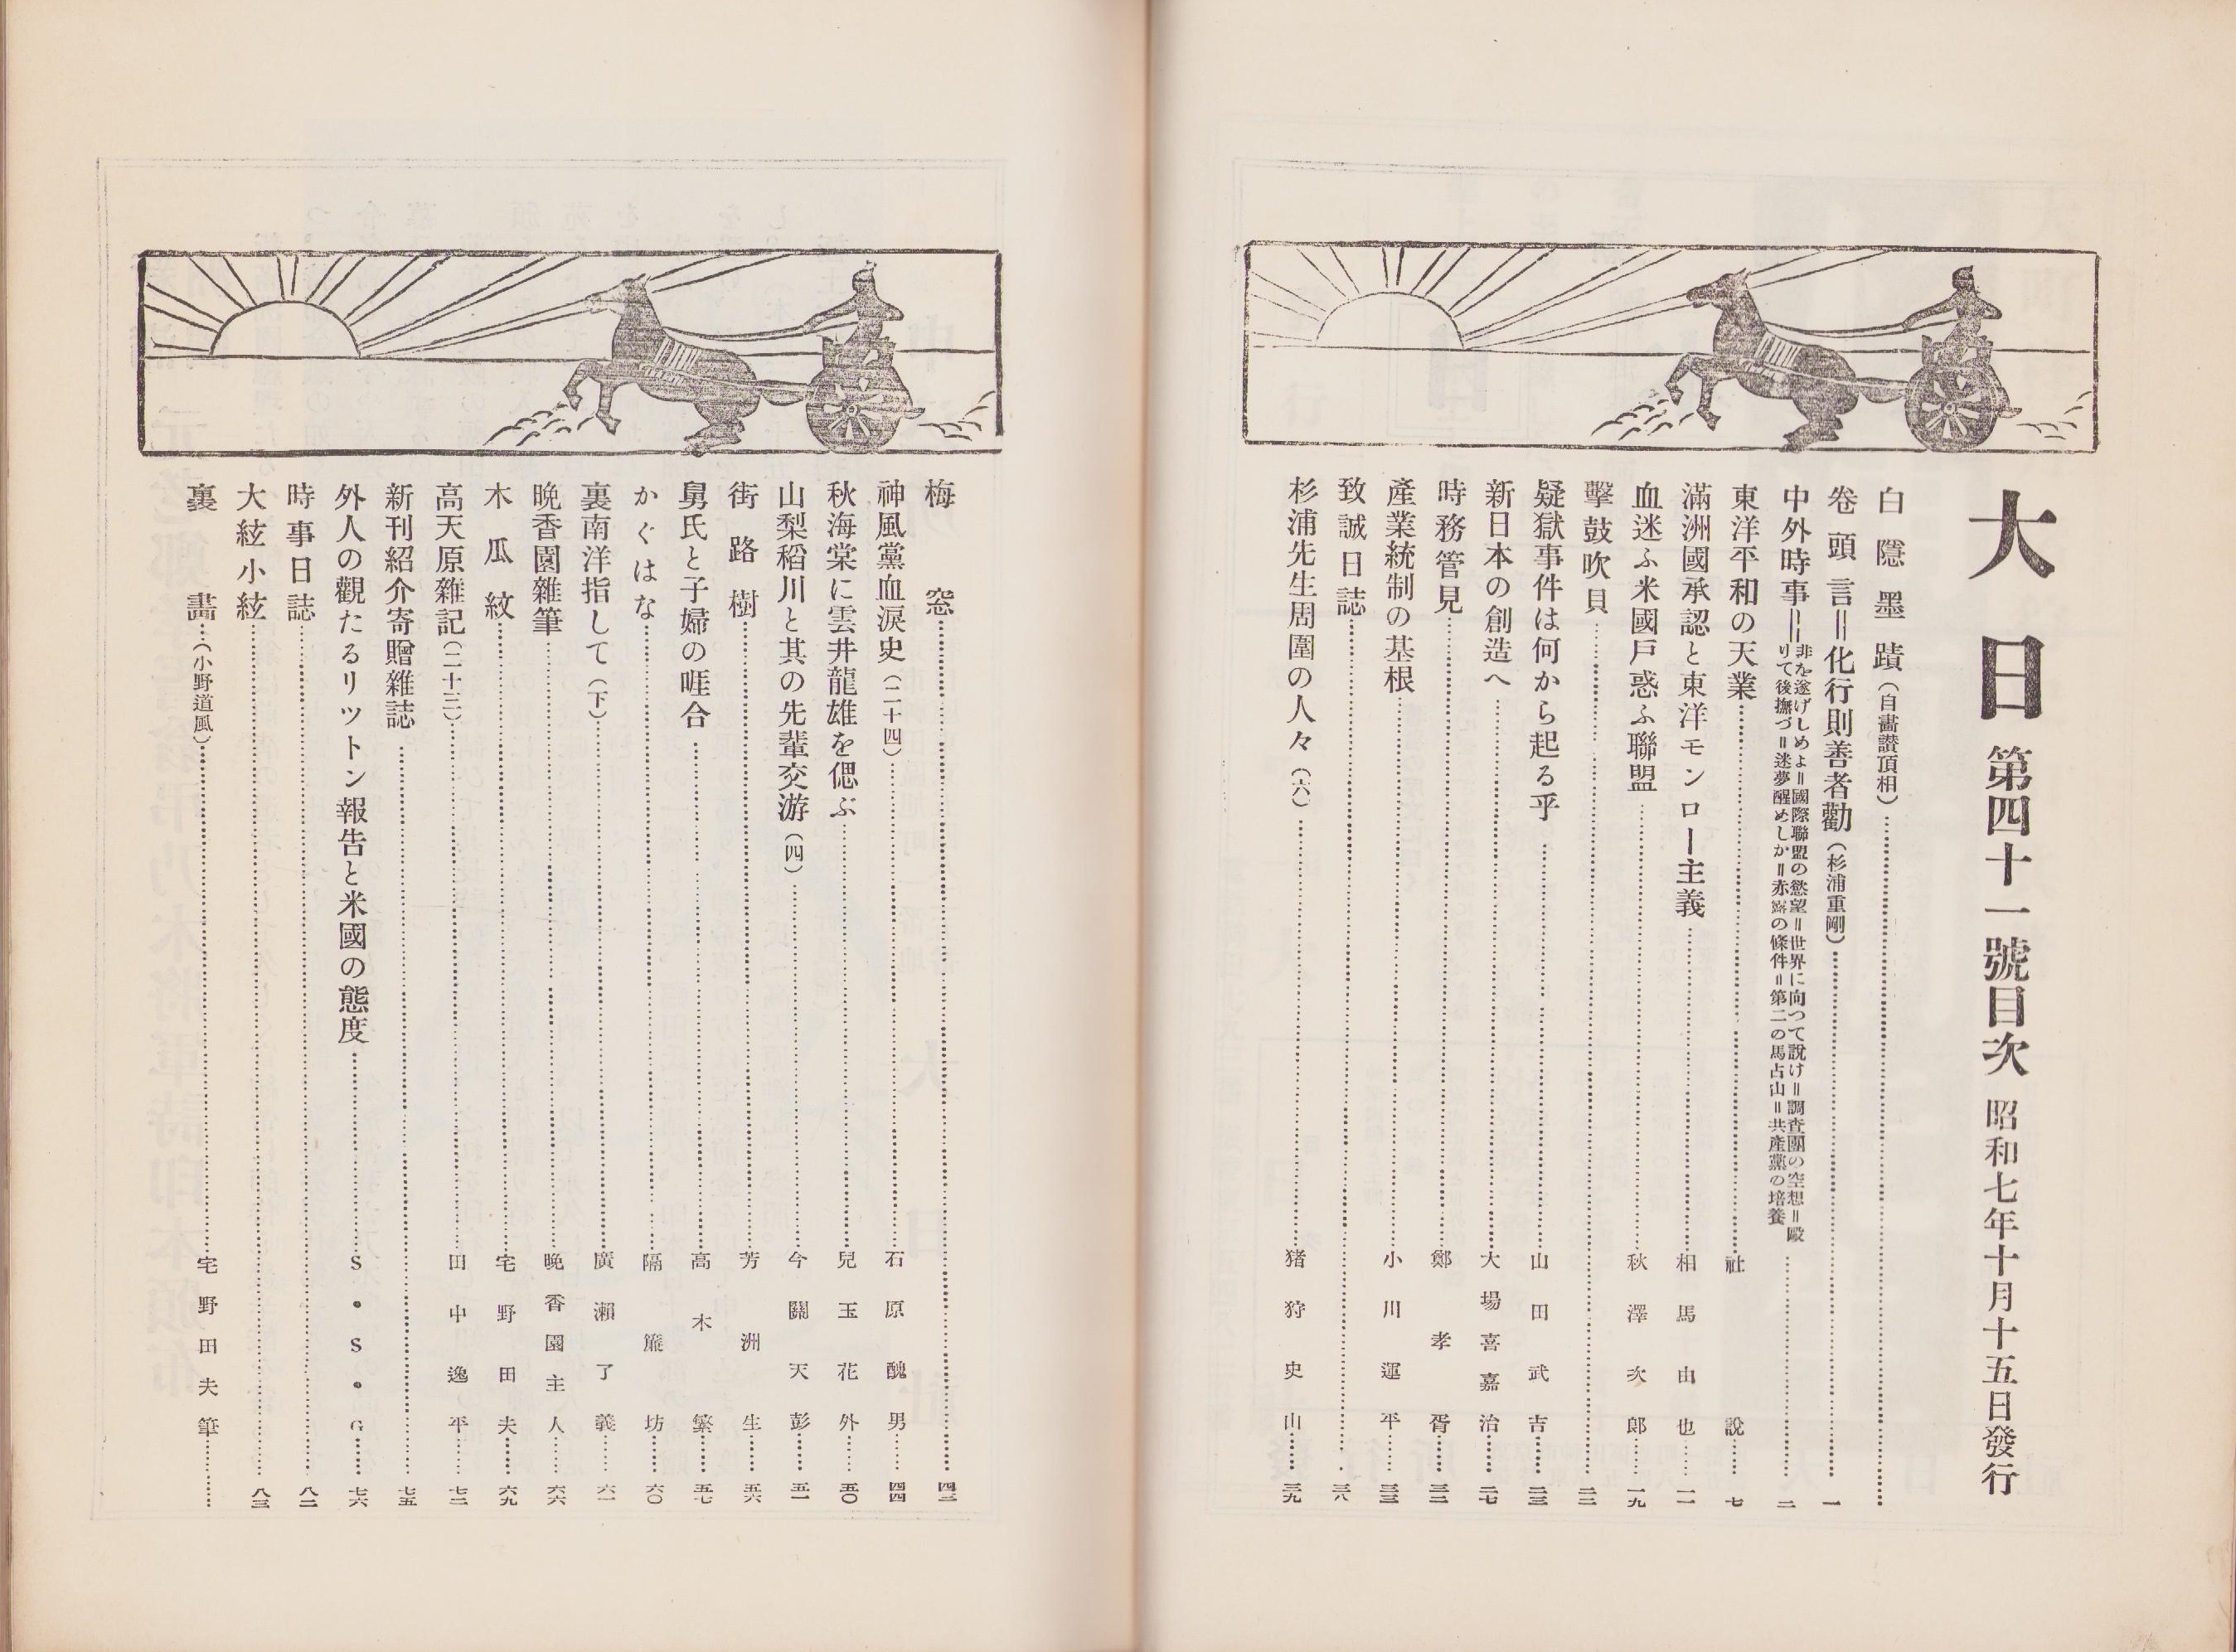 大日 第四十一號目次 昭和七年十月十五日發行
白隱墨蹟(自畵讃頂相)
卷頭言＝化行則善者勸(杉浦重剛)一
中外時事＝非を遂げしめよ＝國際聯盟の慾望＝世界に向つて說け＝調査團の空想＝毆りて後撫づ＝迷夢醒めしか＝赤露の條件＝第二の馬占山＝共產黨の培養 二
東洋平和の天業 社說 七
滿洲國承認と東洋モンロー主義 相馬由也 一一
血迷ふ米國戶惑ふ聯盟 秋澤次郎 一九
擊鼓吹貝 二二
疑獄事件は何から起る乎 山田武吉 二三
新日本の創造へ 大場喜嘉治 二七
時務管見 鄭孝胥 三二
產業統制の基根 小川運平 三三
致誠日誌 三八
杉浦先生周圍の人々(六) 猪狩史山 三九
梅窓 四二
神風黨血淚史(二十四) 石原醜男 四四
秋海棠に雲井龍雄を偲ぶ 兒玉花外 五〇
山梨稻川と其の先輩交游(四) 今關天彭 五一
街路樹 芳洲生 五六
舅氏と子婦の啀合 高木繁 五七
かぐはな 隔簾坊 六〇
裏南洋指して(下) 廣瀨了義 六一
晩香園雜筆 晩香園主人 六六
木瓜紋 宅野田夫 六九
高天原雜記(二十三) 田中逸平 七二
新刊紹介寄贈雜誌 七五
外人の觀たるリットン報吿と米國の態度 S・S・G 七六
時事日誌 八二
大絃小絃 八三
裏畵(小野道風) 宅野田夫筆